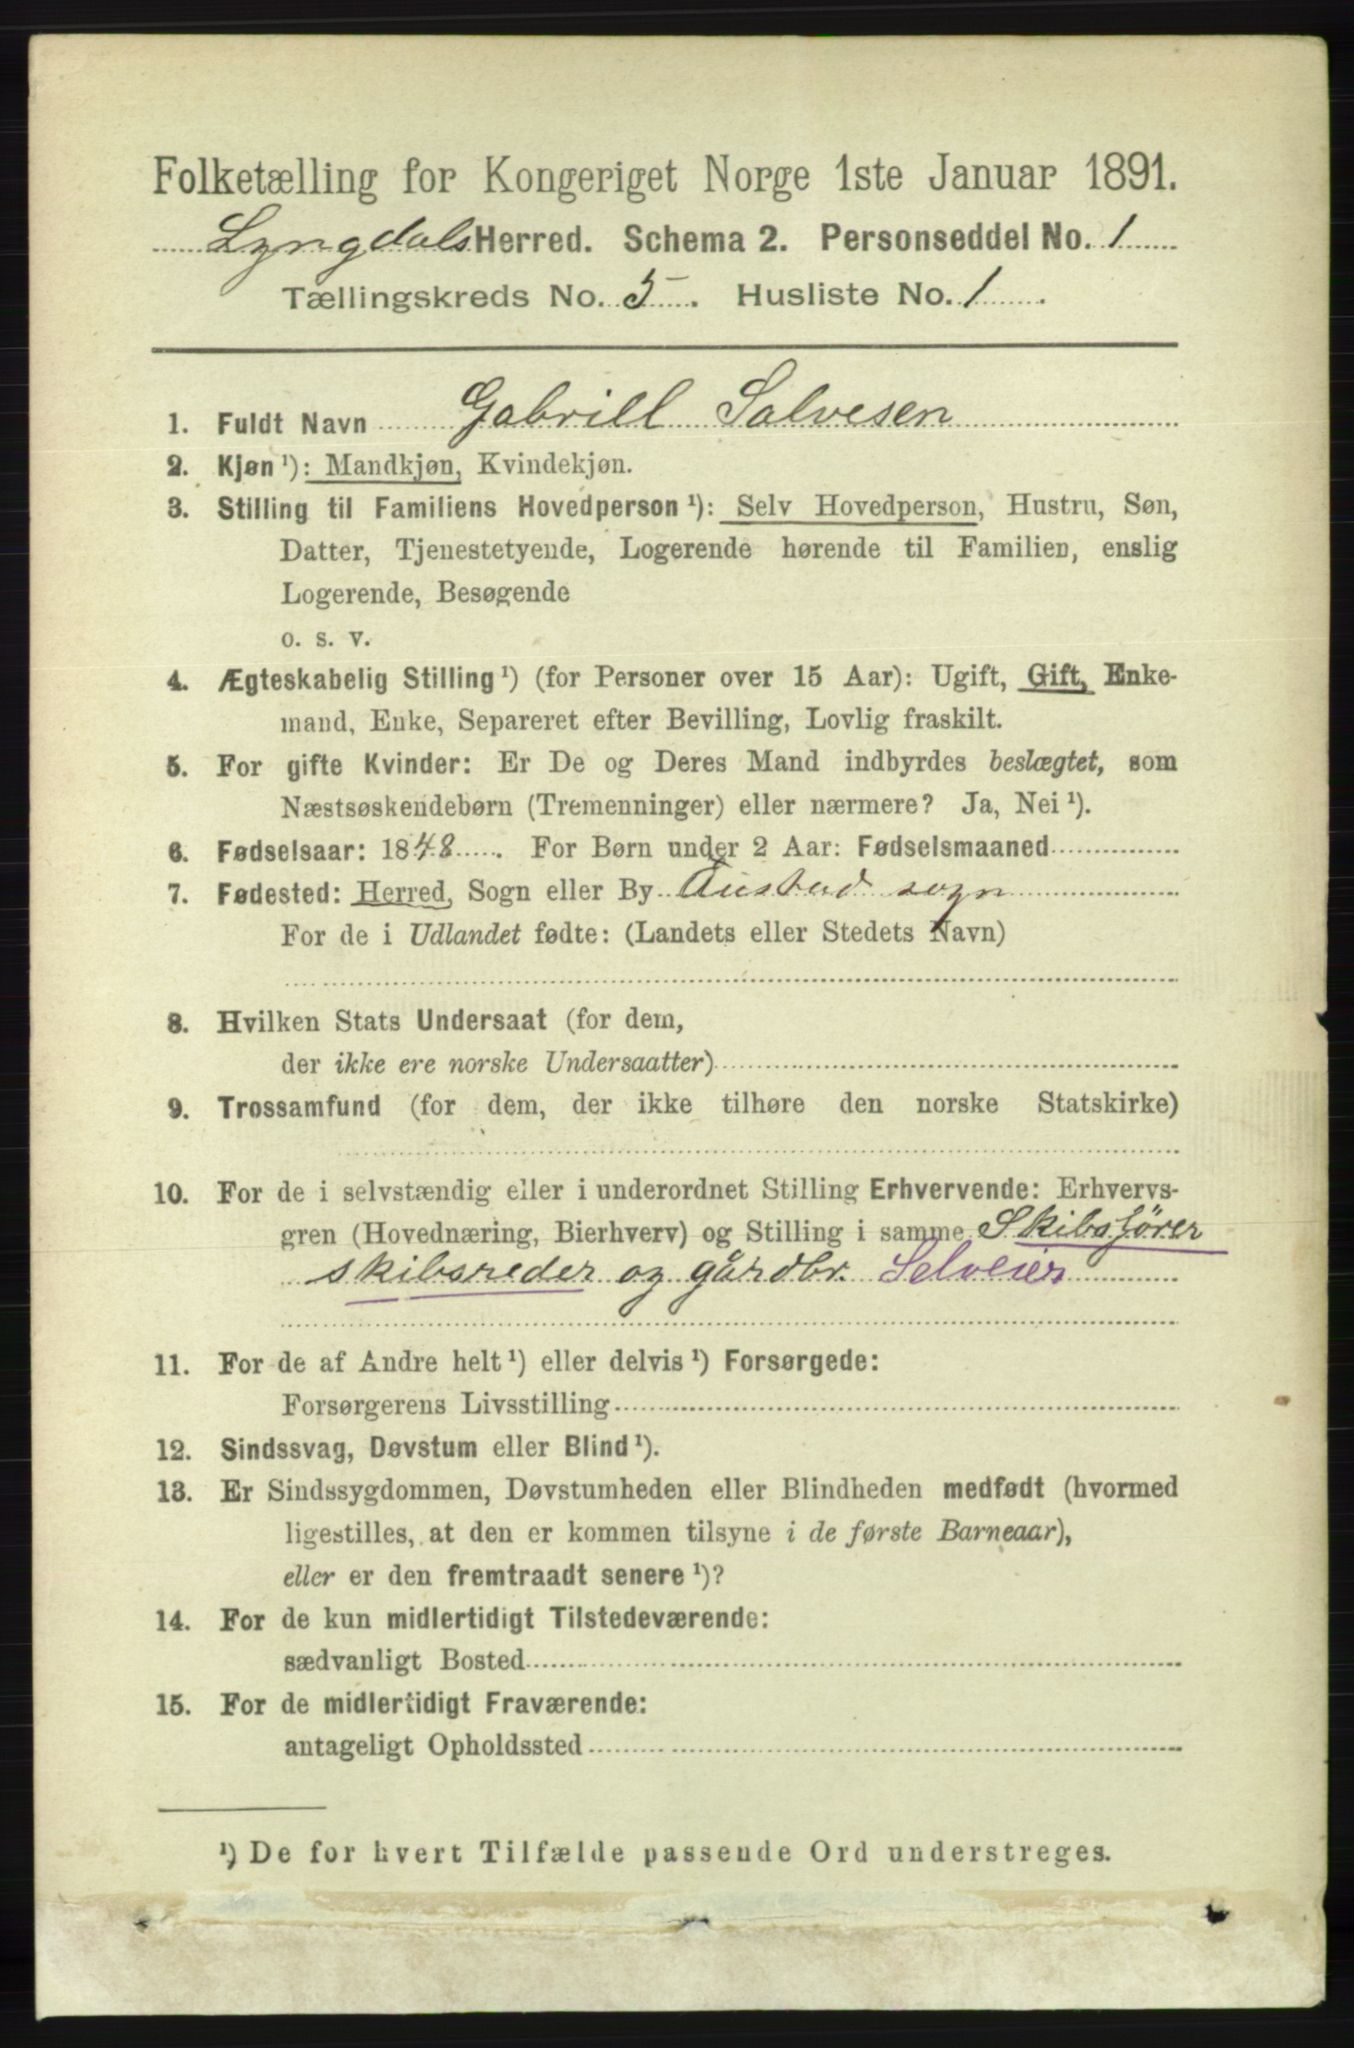 Folketælling for Kongeriget Norge 1ste Januar 1891.
Lyngdals Herred. Schema 2. Personseddel No. 1
Tællingskreds No. 5. Husliste No. 1.
1. Fuldt Navn Gabriell Salvesen
2. Kjøn ¹): Mandkjøn, Kvindekjøn.
3. Stilling til Familiens Hovedperson ¹): Selv Hovedperson, Hustru, Søn,
Datter, Tjenestetyende, Logerende hørende til Familien, enslig
Logerende, Besøgende
o. s. v.
4. Ægteskabelig Stilling ¹) (for Personer over 15 Aar): Ugift, Gift, Enke-
mand, Enke, Separeret efter Bevilling, Lovlig fraskilt.
5. For gifte Kvinder: Er De og Deres Mand indbyrdes beslægtet, som
Næstsøskendebørn (Tremenninger) eller nærmere? Ja, Nei ¹).
6. Fødselsaar: 1848. For Børn under 2 Aar: Fødselsmaaned
7. Fødested: Herred, Sogn eller By Austad sogn
For de i Udlandet fødte: (Landets eller Stedets Navn)
8. Hvilken Stats Undersaat (for dem,
der ikke ere norske Undersaatter)
9. Trossamfund (for dem, der ikke tilhøre den norske Statskirke)
10. For de i selvstændig eller i underordnet Stilling Erhvervende: Erhvervs-
gren (Hovednæring, Bierhverv) og Stilling i samme Skibsfører
skibsreder og gårdbr. Selveier
11. For de af Andre helt ¹) eller delvis ¹) Forsørgede:
Forsørgerens Livsstilling
12. Sindssvag, Døvstum eller Blind ¹).
13. Er Sindssygdommen, Døvstumheden eller Blindheden medfødt (hvormed
ligestilles, at den er kommen tilsyne i de første Barneaar),
eller er den fremtraadt senere ¹)?
14. For de kun midlertidigt Tilstedeværende:
sædvanligt Bosted
15. For de midlertidigt Fraværende:
antageligt Opholdssted
¹) De for hvert Tilfælde passende Ord understreges.